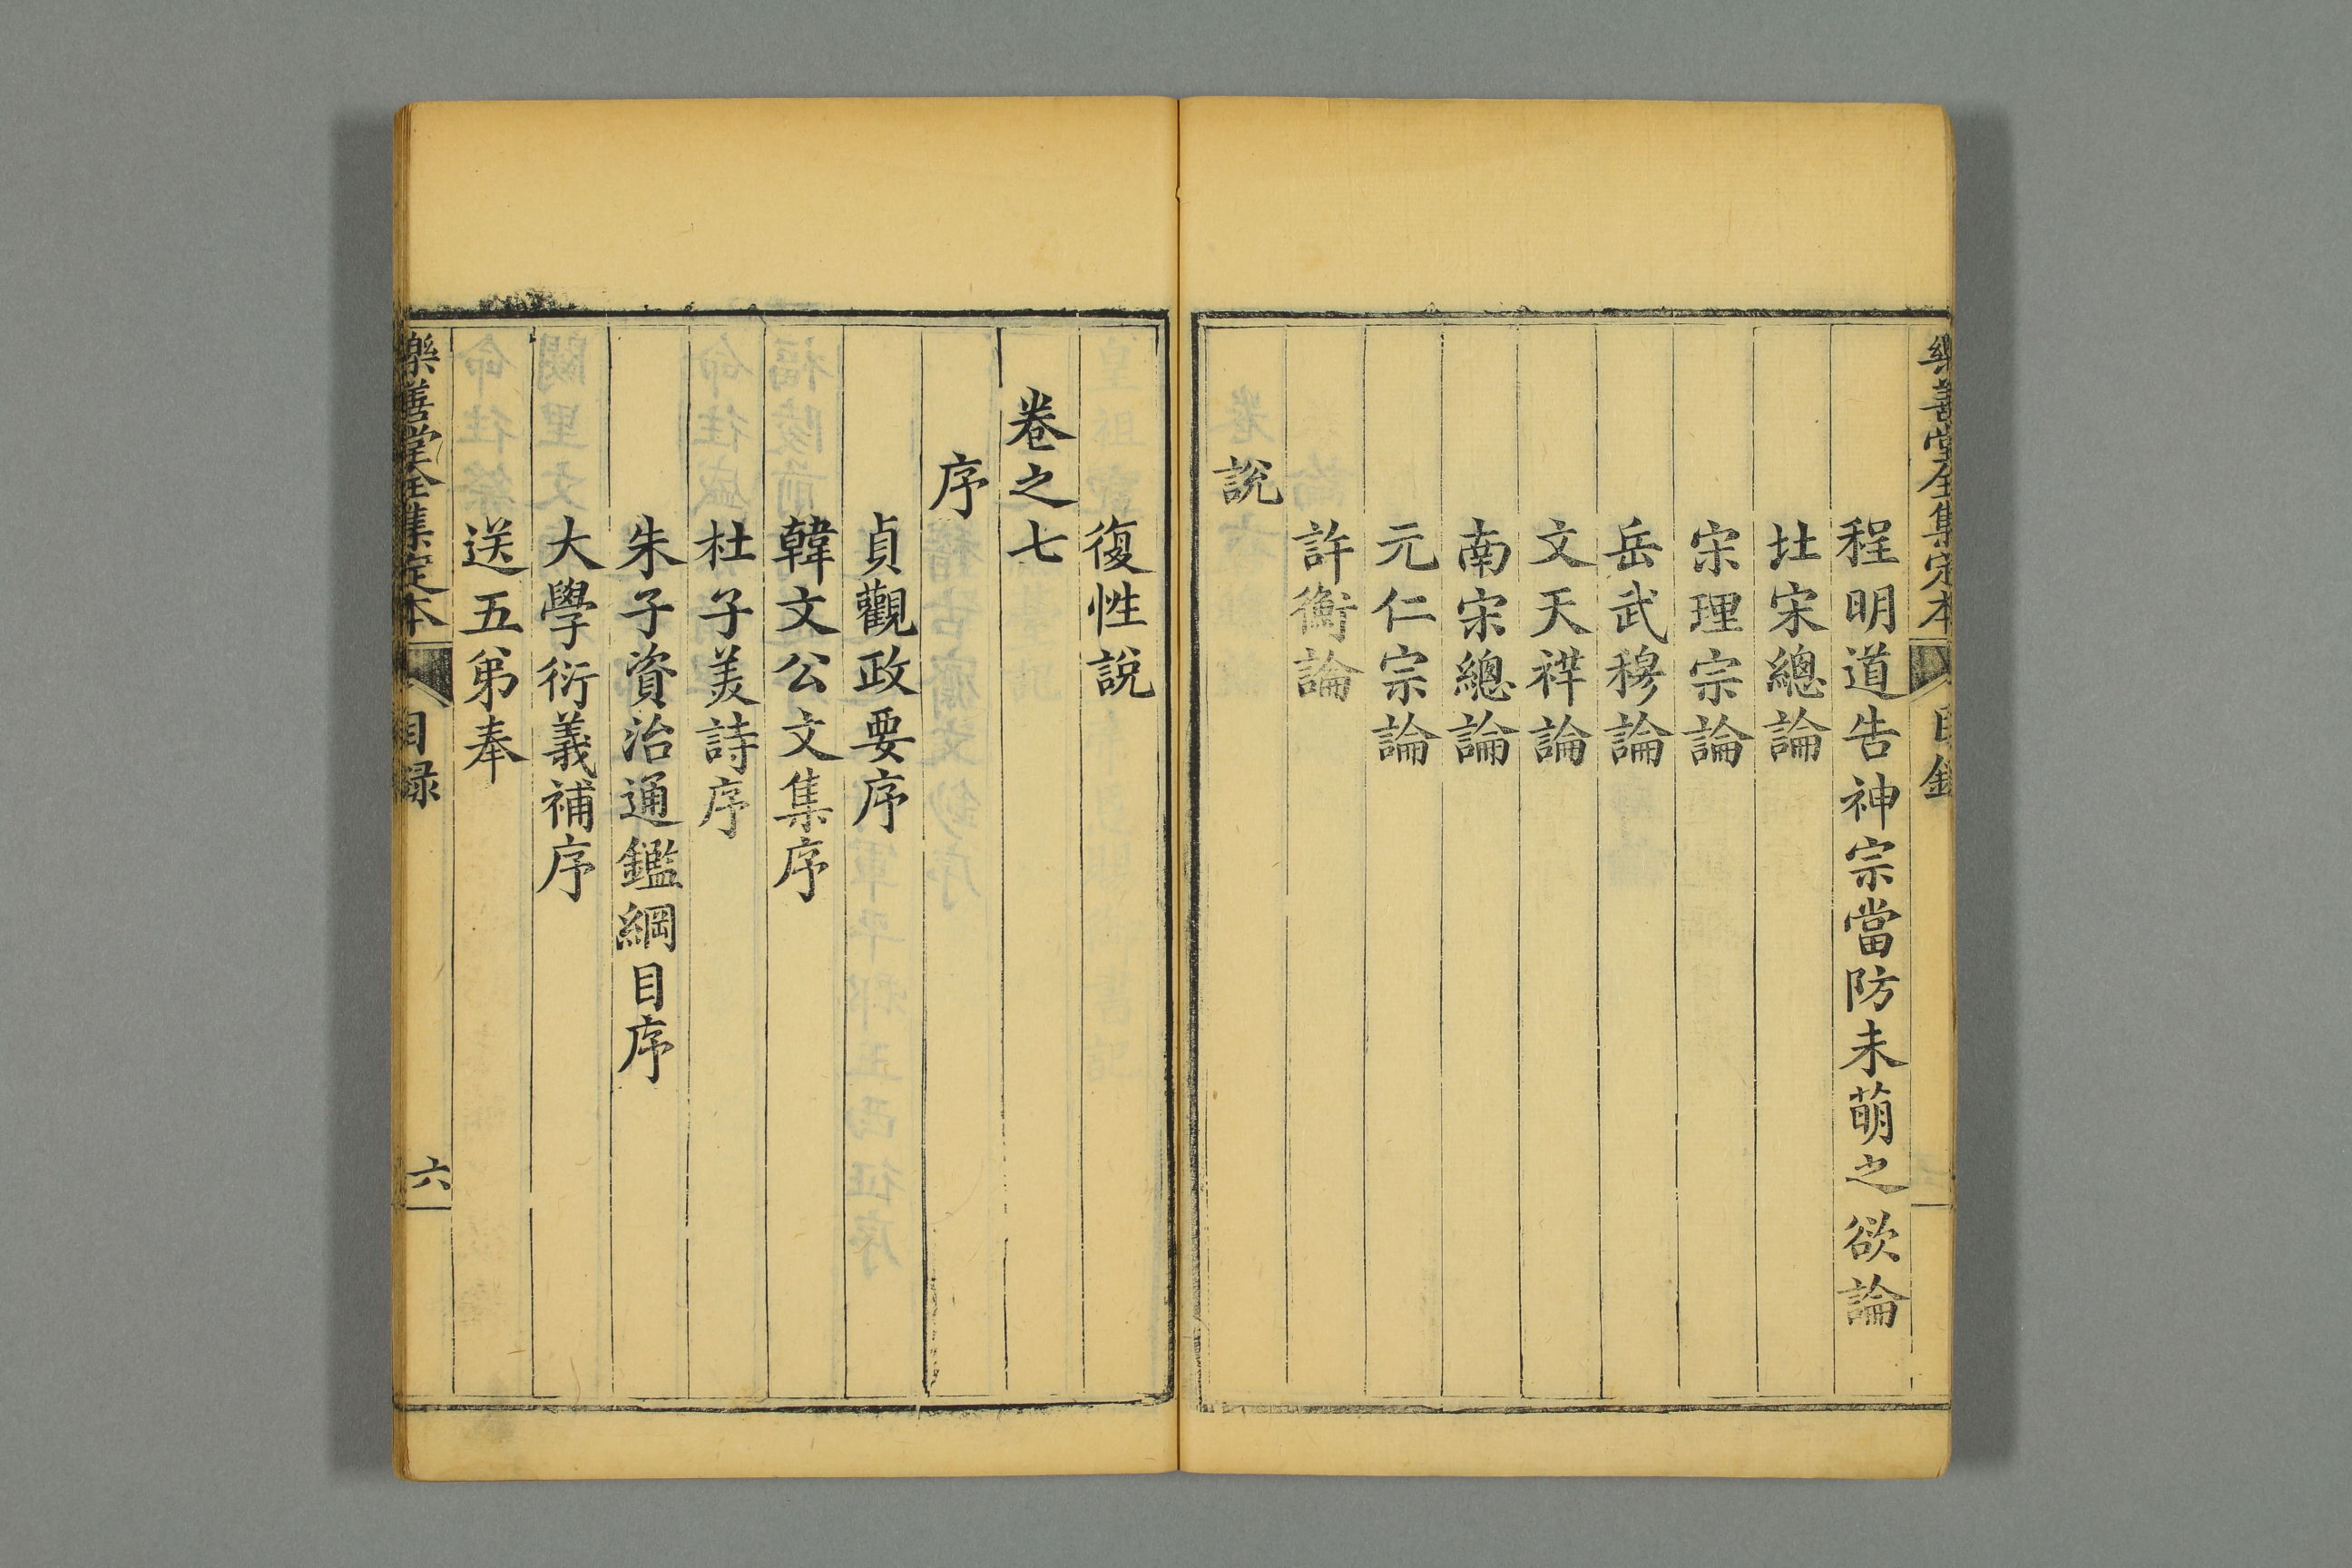 樂善堂全集定本 目録
程明道告神宗當防未萌之欲論
北宋總論
宋理宗論
岳武穆論
文天祥論
南宋總論
元仁宗論
許衡論
說
復性說
卷之七
序
貞觀政要序
韓文公文集序
杜子美詩序
朱子資治通鑑綱目序
大學衍義補序
送五弟奉
樂善堂全集定本 目録 六